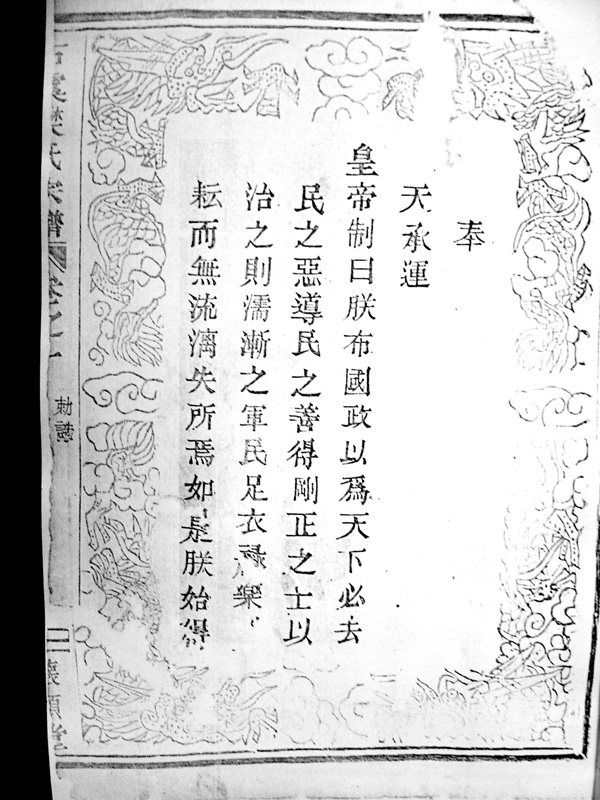 奉
天承運
皇帝制曰朕布國政以爲天下必去
民之惡導民之善得剛正之士以
治之則濡漸之軍民足衣祿樂
耘而無流漓失所焉如是朕始得
氏宗譜
卷之一
勅誥
二